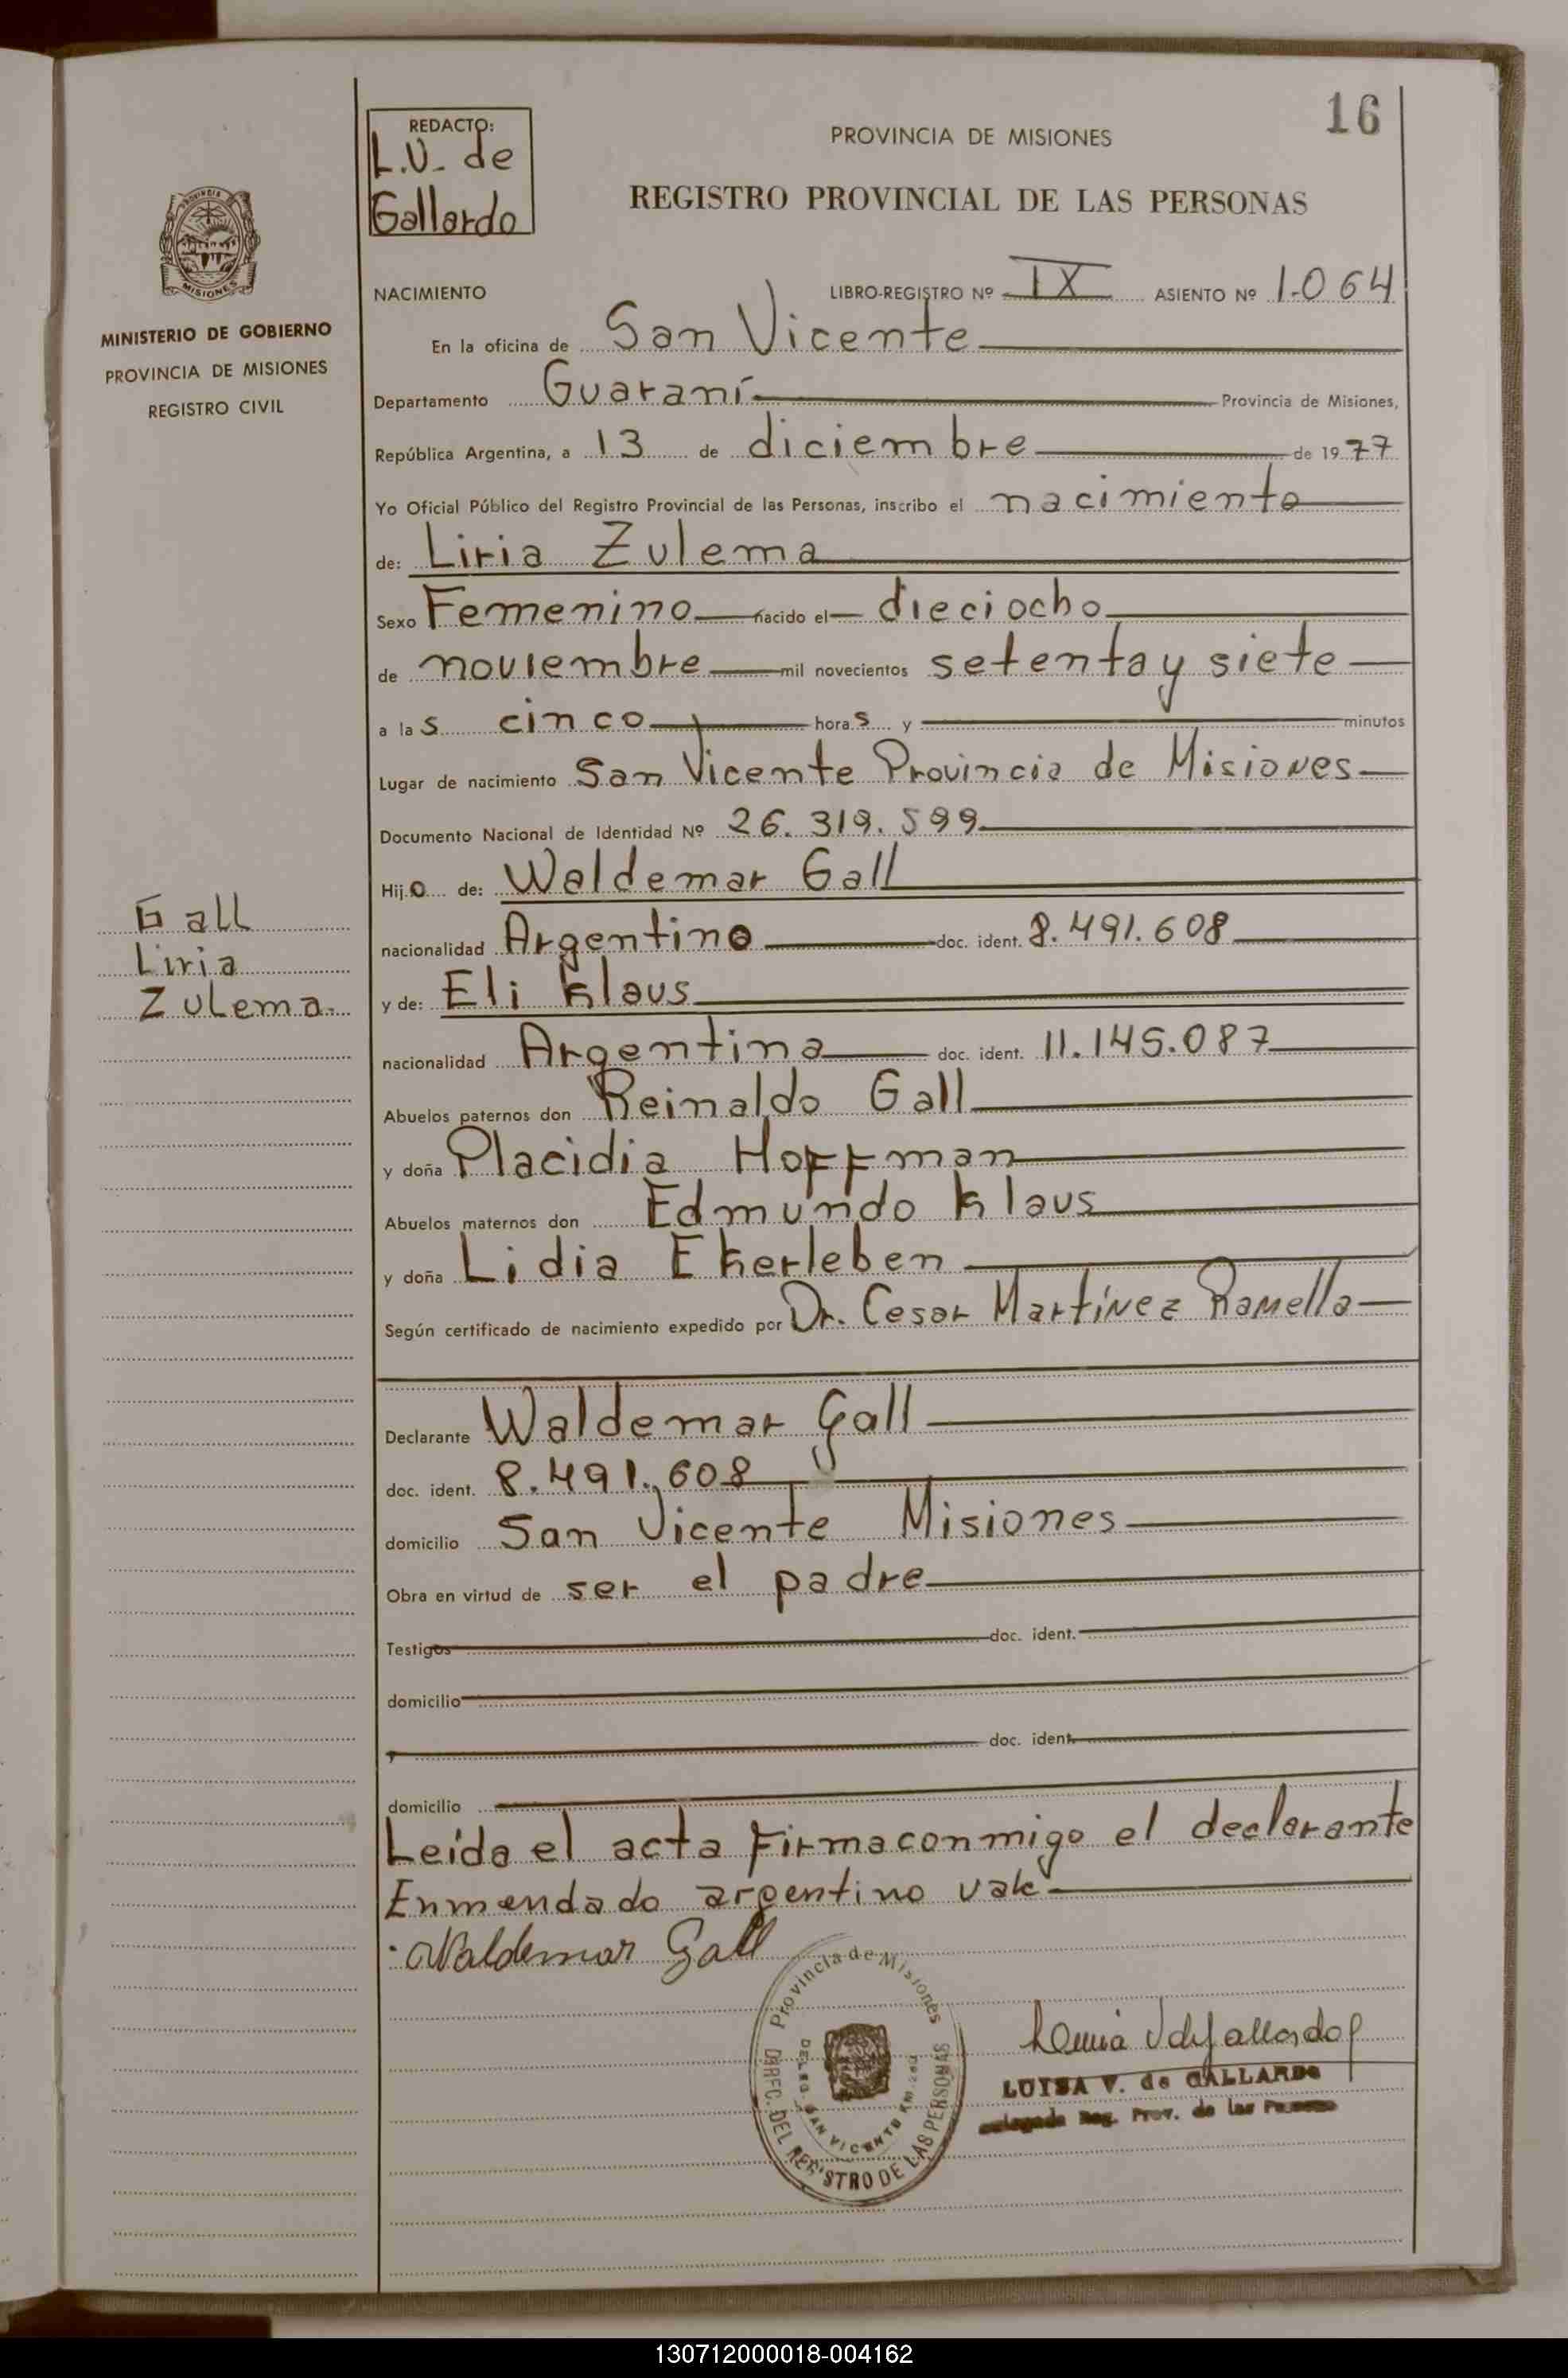 16
REDACTO:
L.V. de
Gallardo
PROVINCIA DE MISIONES
REGISTRO PROVINCIAL DE LAS PERSONAS
PROVINCIA DE
MISIONES
MINISTERIO DE GOBIERNO
PROVINCIA DE MISIONES
REGISTRO CIVIL
NACIMIENTO LIBRO-REGISTRO Nº IX ASIENTO Nº 1.064
En la oficina de San Vicente
Departamento Guaraní Provincia de Misiones,
República Argentina, a 13 de diciembre de 1977
Yo Oficial Público del Registro Provincial de las Personas, inscribo el nacimiento
de: Liria Zulema
Sexo Femenino nacido el dieciocho
de noviembre mil novecientos setenta y siete
a las cinco horas y minutos
Lugar de nacimiento San Vicente Provincia de Misiones
Documento Nacional de Identidad Nº 26.319.599
Hijo de: Waldemar Gall
nacionalidad Argentino doc. ident. 8.491.608
y de: Eli Klaus
nacionalidad Argentina doc. ident. 11.145.087
Abuelos paternos don Reinaldo Gall
y doña Placidia Hoffman
Abuelos maternos don Edmundo Klaus
y doña Lidia Ekerleben
Según certificado de nacimiento expedido por Dr. Cesar Martínez Ramella
Gall
Liria
Zulema.
Declarante Waldemar Gall
doc. ident. 8.491.608
domicilio San Vicente Misiones
Obra en virtud de ser el padre
Testigos doc. ident.
domicilio
y doc. ident.
domicilio
Leída el acta firma conmigo el declarante
Enmendado argentino vale
Waldemar Gall
Provincia de Misiones
DIREC. DEL REGISTRO DE LAS PERSONAS
DELEG. SAN VICENTE KM.
LUISA V. de GALLARDO
Delegada Reg. Prov. de las Personas
130712000018-004162